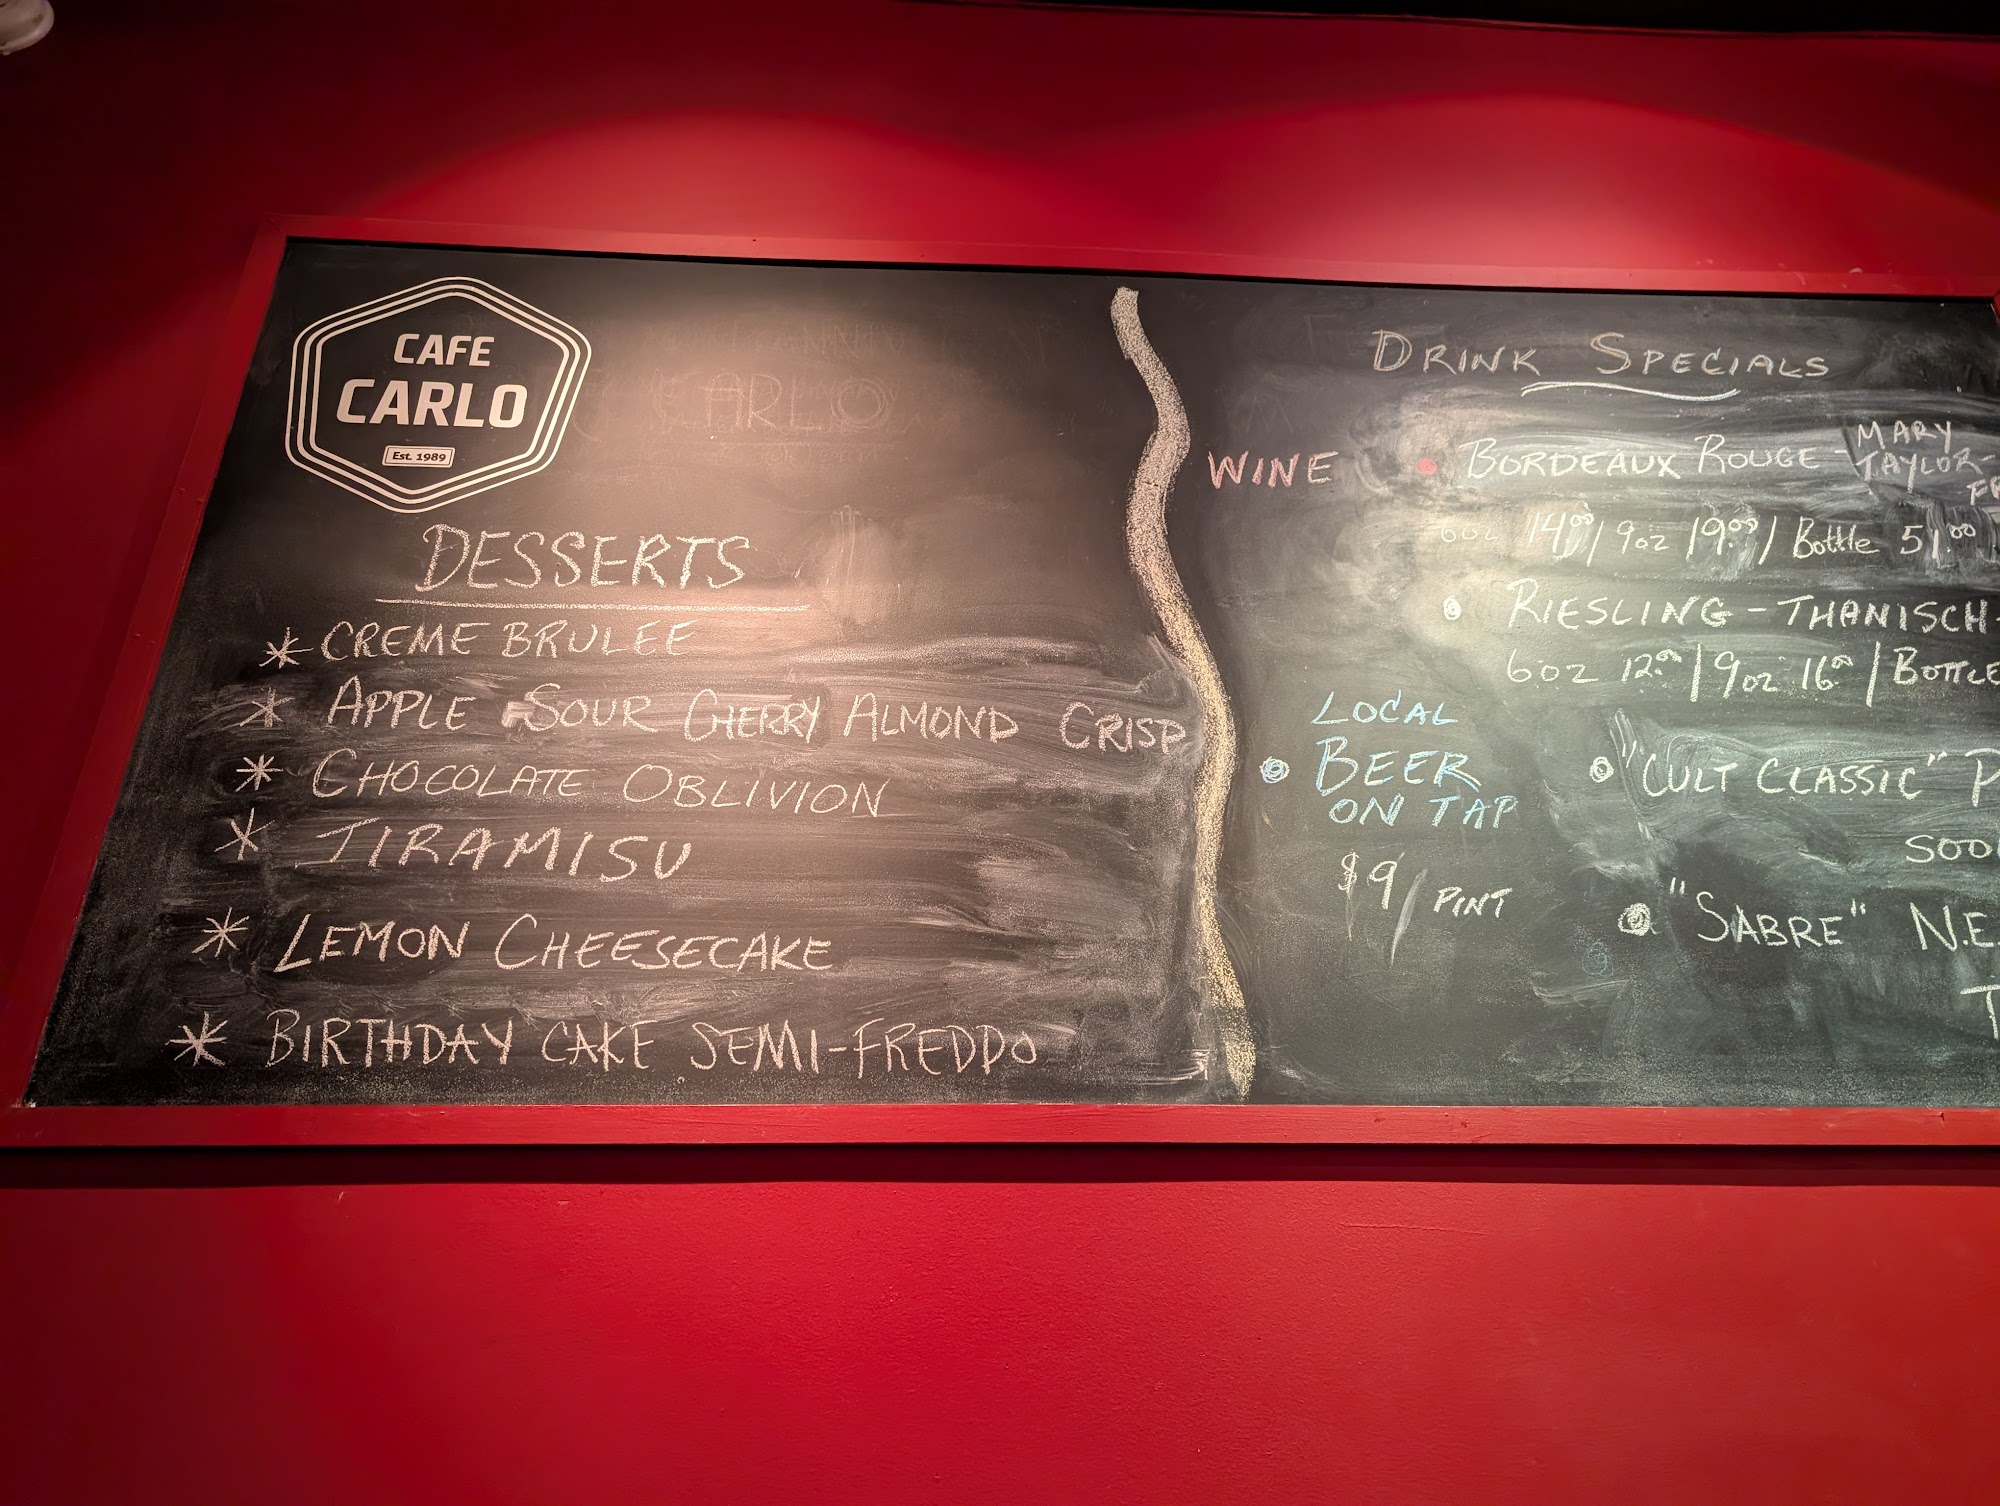 CAFE
CARLO
Est. 1989
DESSERTS
* CREME BRULEE
* APPLE SOUR CHERRY ALMOND CRISP
* CHOCOLATE OBLIVION
* TIRAMISU
* LEMON CHEESECAKE
* BIRTHDAY CAKE SEMI-FREDDO
DRINK SPECIALS
WINE • BORDEAUX ROUGE - MARY
TAYLOR-
6oz 14.00 / 9oz 19.00 / Bottle 51.00
• RIESLING - THANISCH-
6oz 12.00 / 9oz 16.00 / BOTTLE
LOCAL
• BEER
ON TAP
$9/PINT
• "CULT CLASSIC"
• "SABRE" N.E.